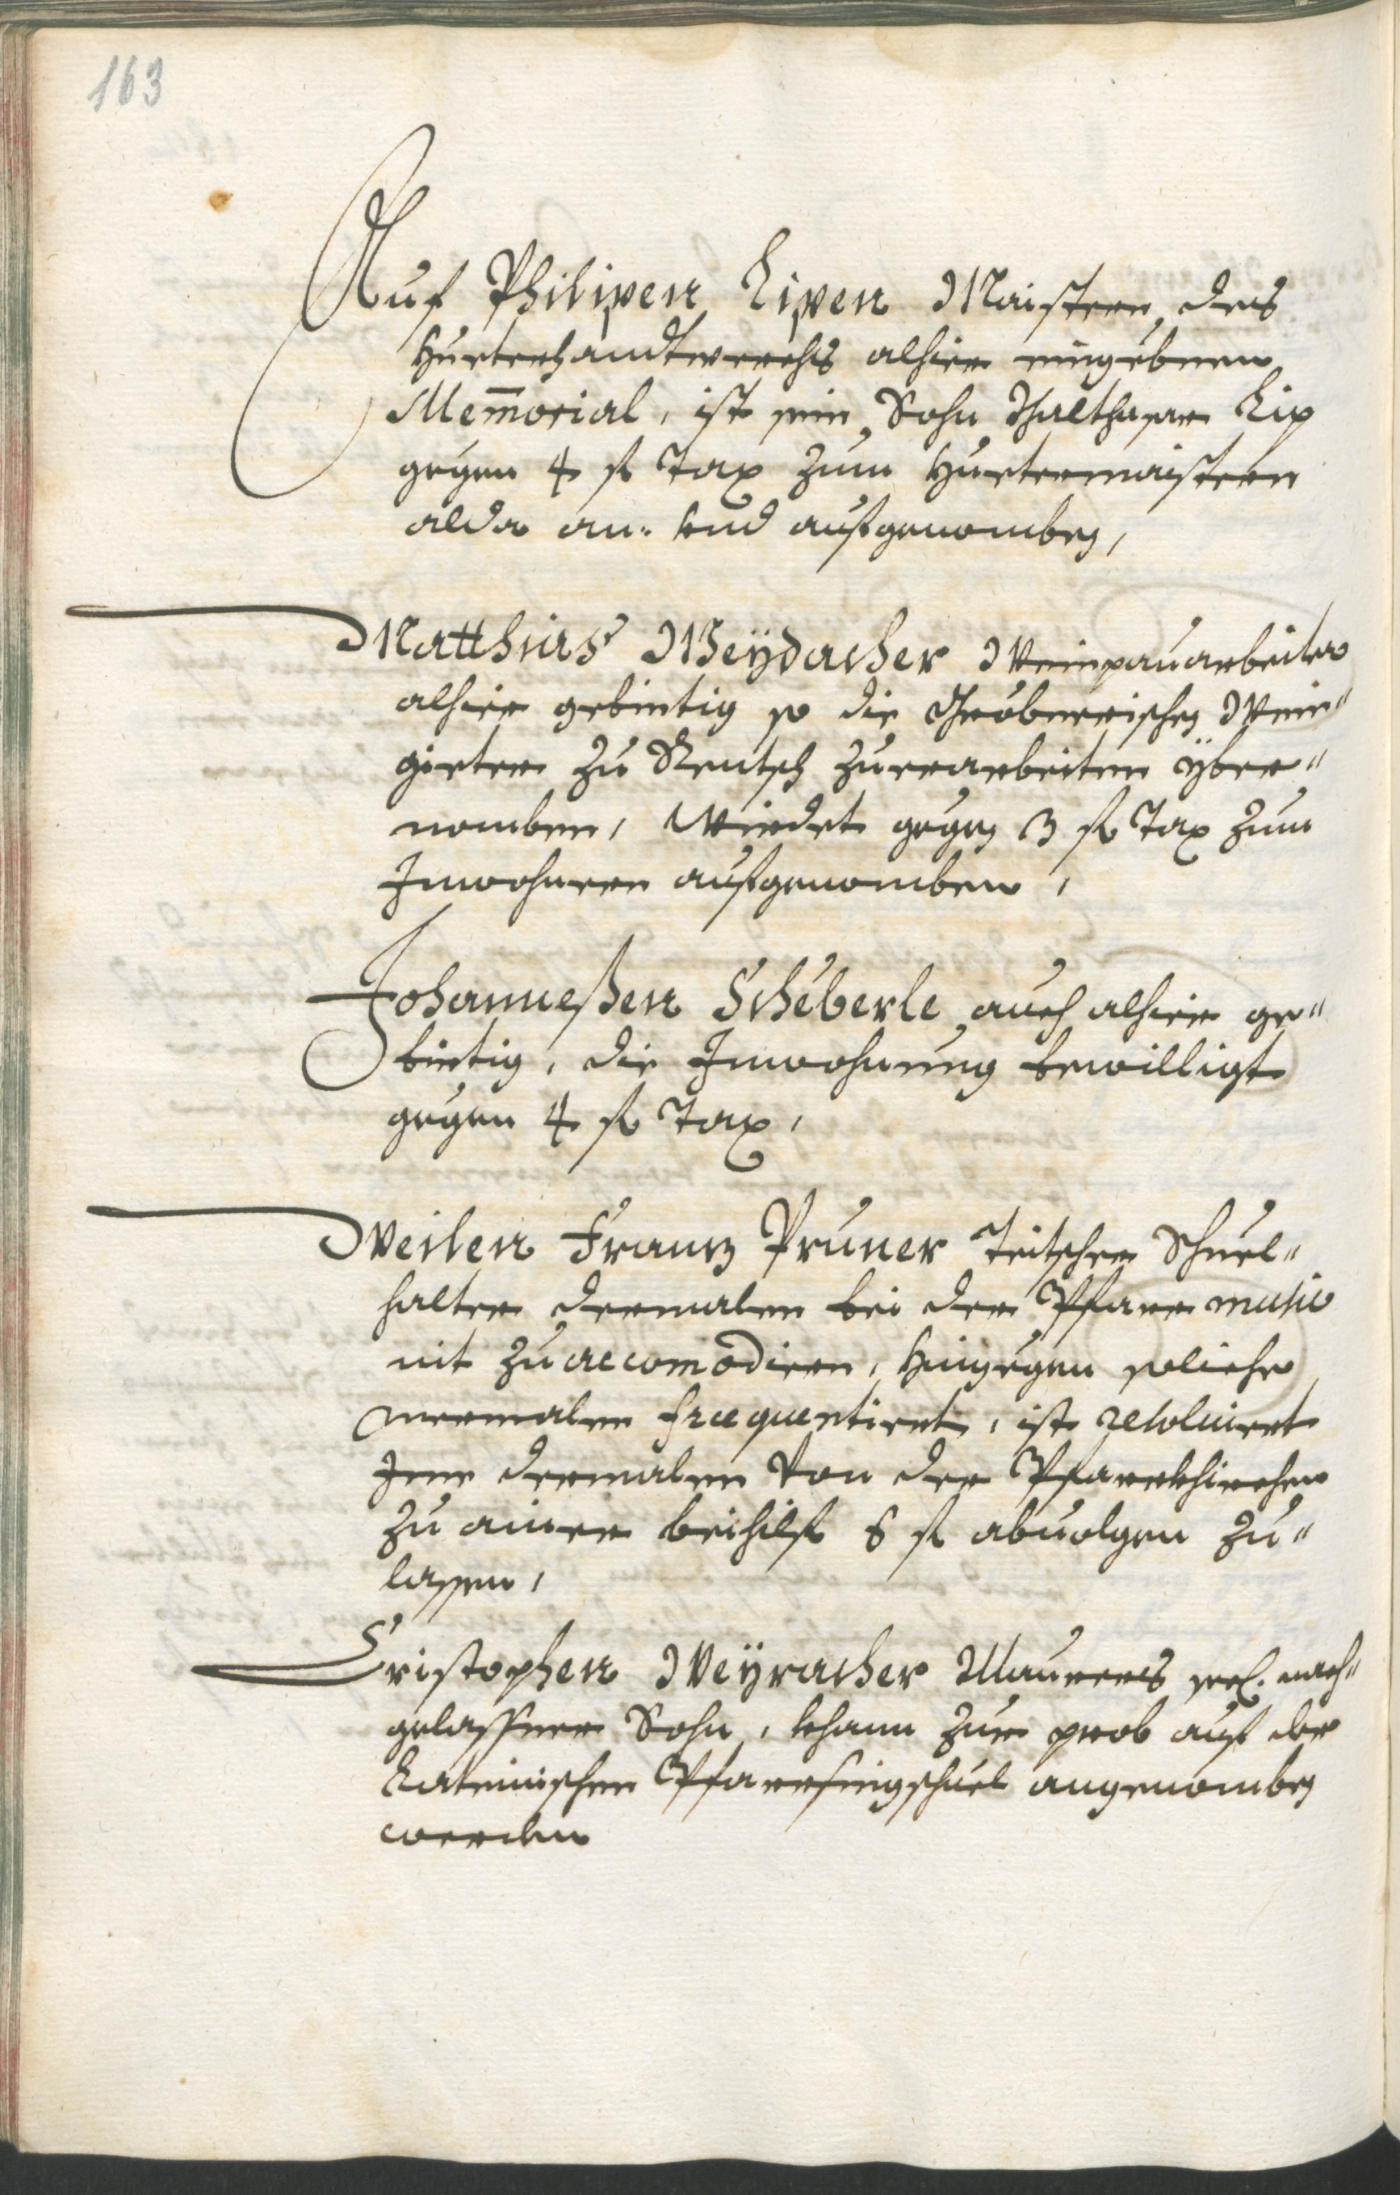 163
Auf Philipen Lipen Maistern des
Huetterhandtwerchs alhier eingebnen
Memorial, ist sein Sohn Walthasar Lip
gegen 4 fl Tax zum Huettermaistern
alda an- und aufgenomben,
Matthias Weÿdacher Weinpauarbeiter
alhier gebirtig so die Gröbnerischen Wein-
gieter zu Rentsch zuerarbeiten yber-
nomben, wirdet gegen 3 fl Tax zum
Inwohnern aufgenomben,
Johanneßen Scheberle auch alhier ge-
birtig, die Inwohnung bewilligt
gegen 4 fl Tax,
Weilen Franz Pruner Teitscher Schuel-
halter dermalen bei der Pfarr music
nit zu accomodieren, hingegen soliche
mermalen fraequentiert, ist resoluiert
Ime dermalen von der Pfarrkhirchen
zu ainer beihilf 6 fl abuolgen zu-
lassen,
Cristophen Weÿracher Maurers seel. nach-
gelassner Sohn, khann zur prob auf der
Lateinischen Pfarrsingschuel angenomben
werden